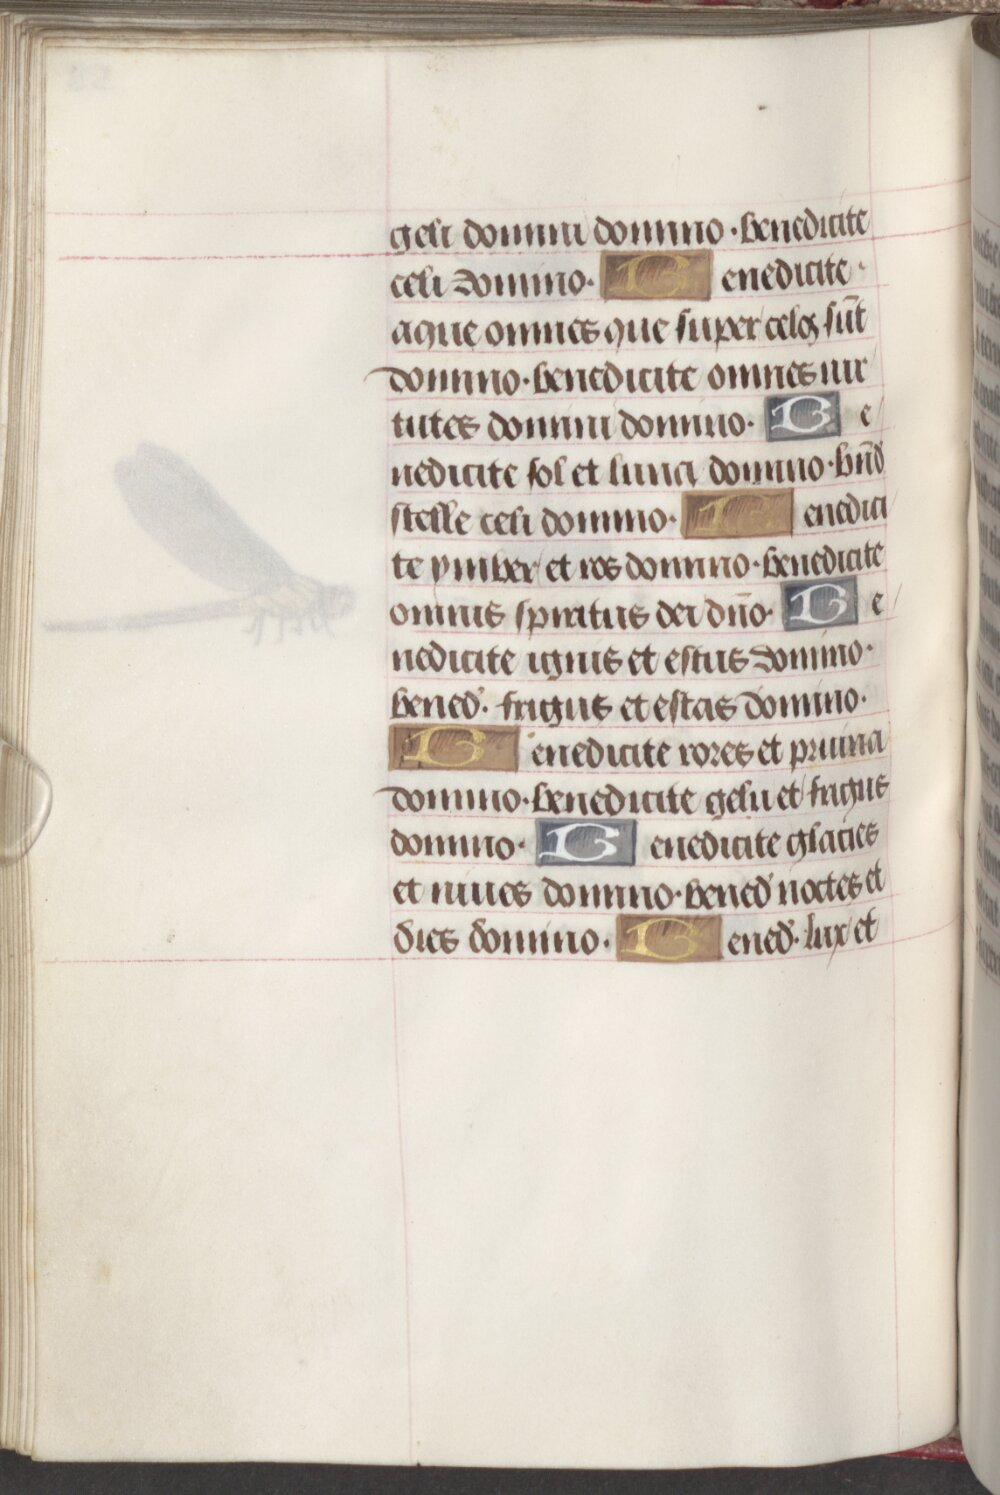 geli domini domino · benedicite
celi domino · Benedicite ·
aque omnes que super celos su̅t
domino · benedicite omnes uir
tutes domini domino · Be
nedicite sol et luna domino · bn̅d
stelle celi domino · Benedici
te ymber et ros domino · benedicite
omnis spiritus dei dn̅o · Be
nedicite ignis et estus domino ·
bened̛ · frigus et estas domino ·
Benedicite rores et pruina
domino · benedicite gelu et frigus
domino · Benedicite glacies
et niues domino · bened̛ noctes et
dies domino · Bened̛ · lux et